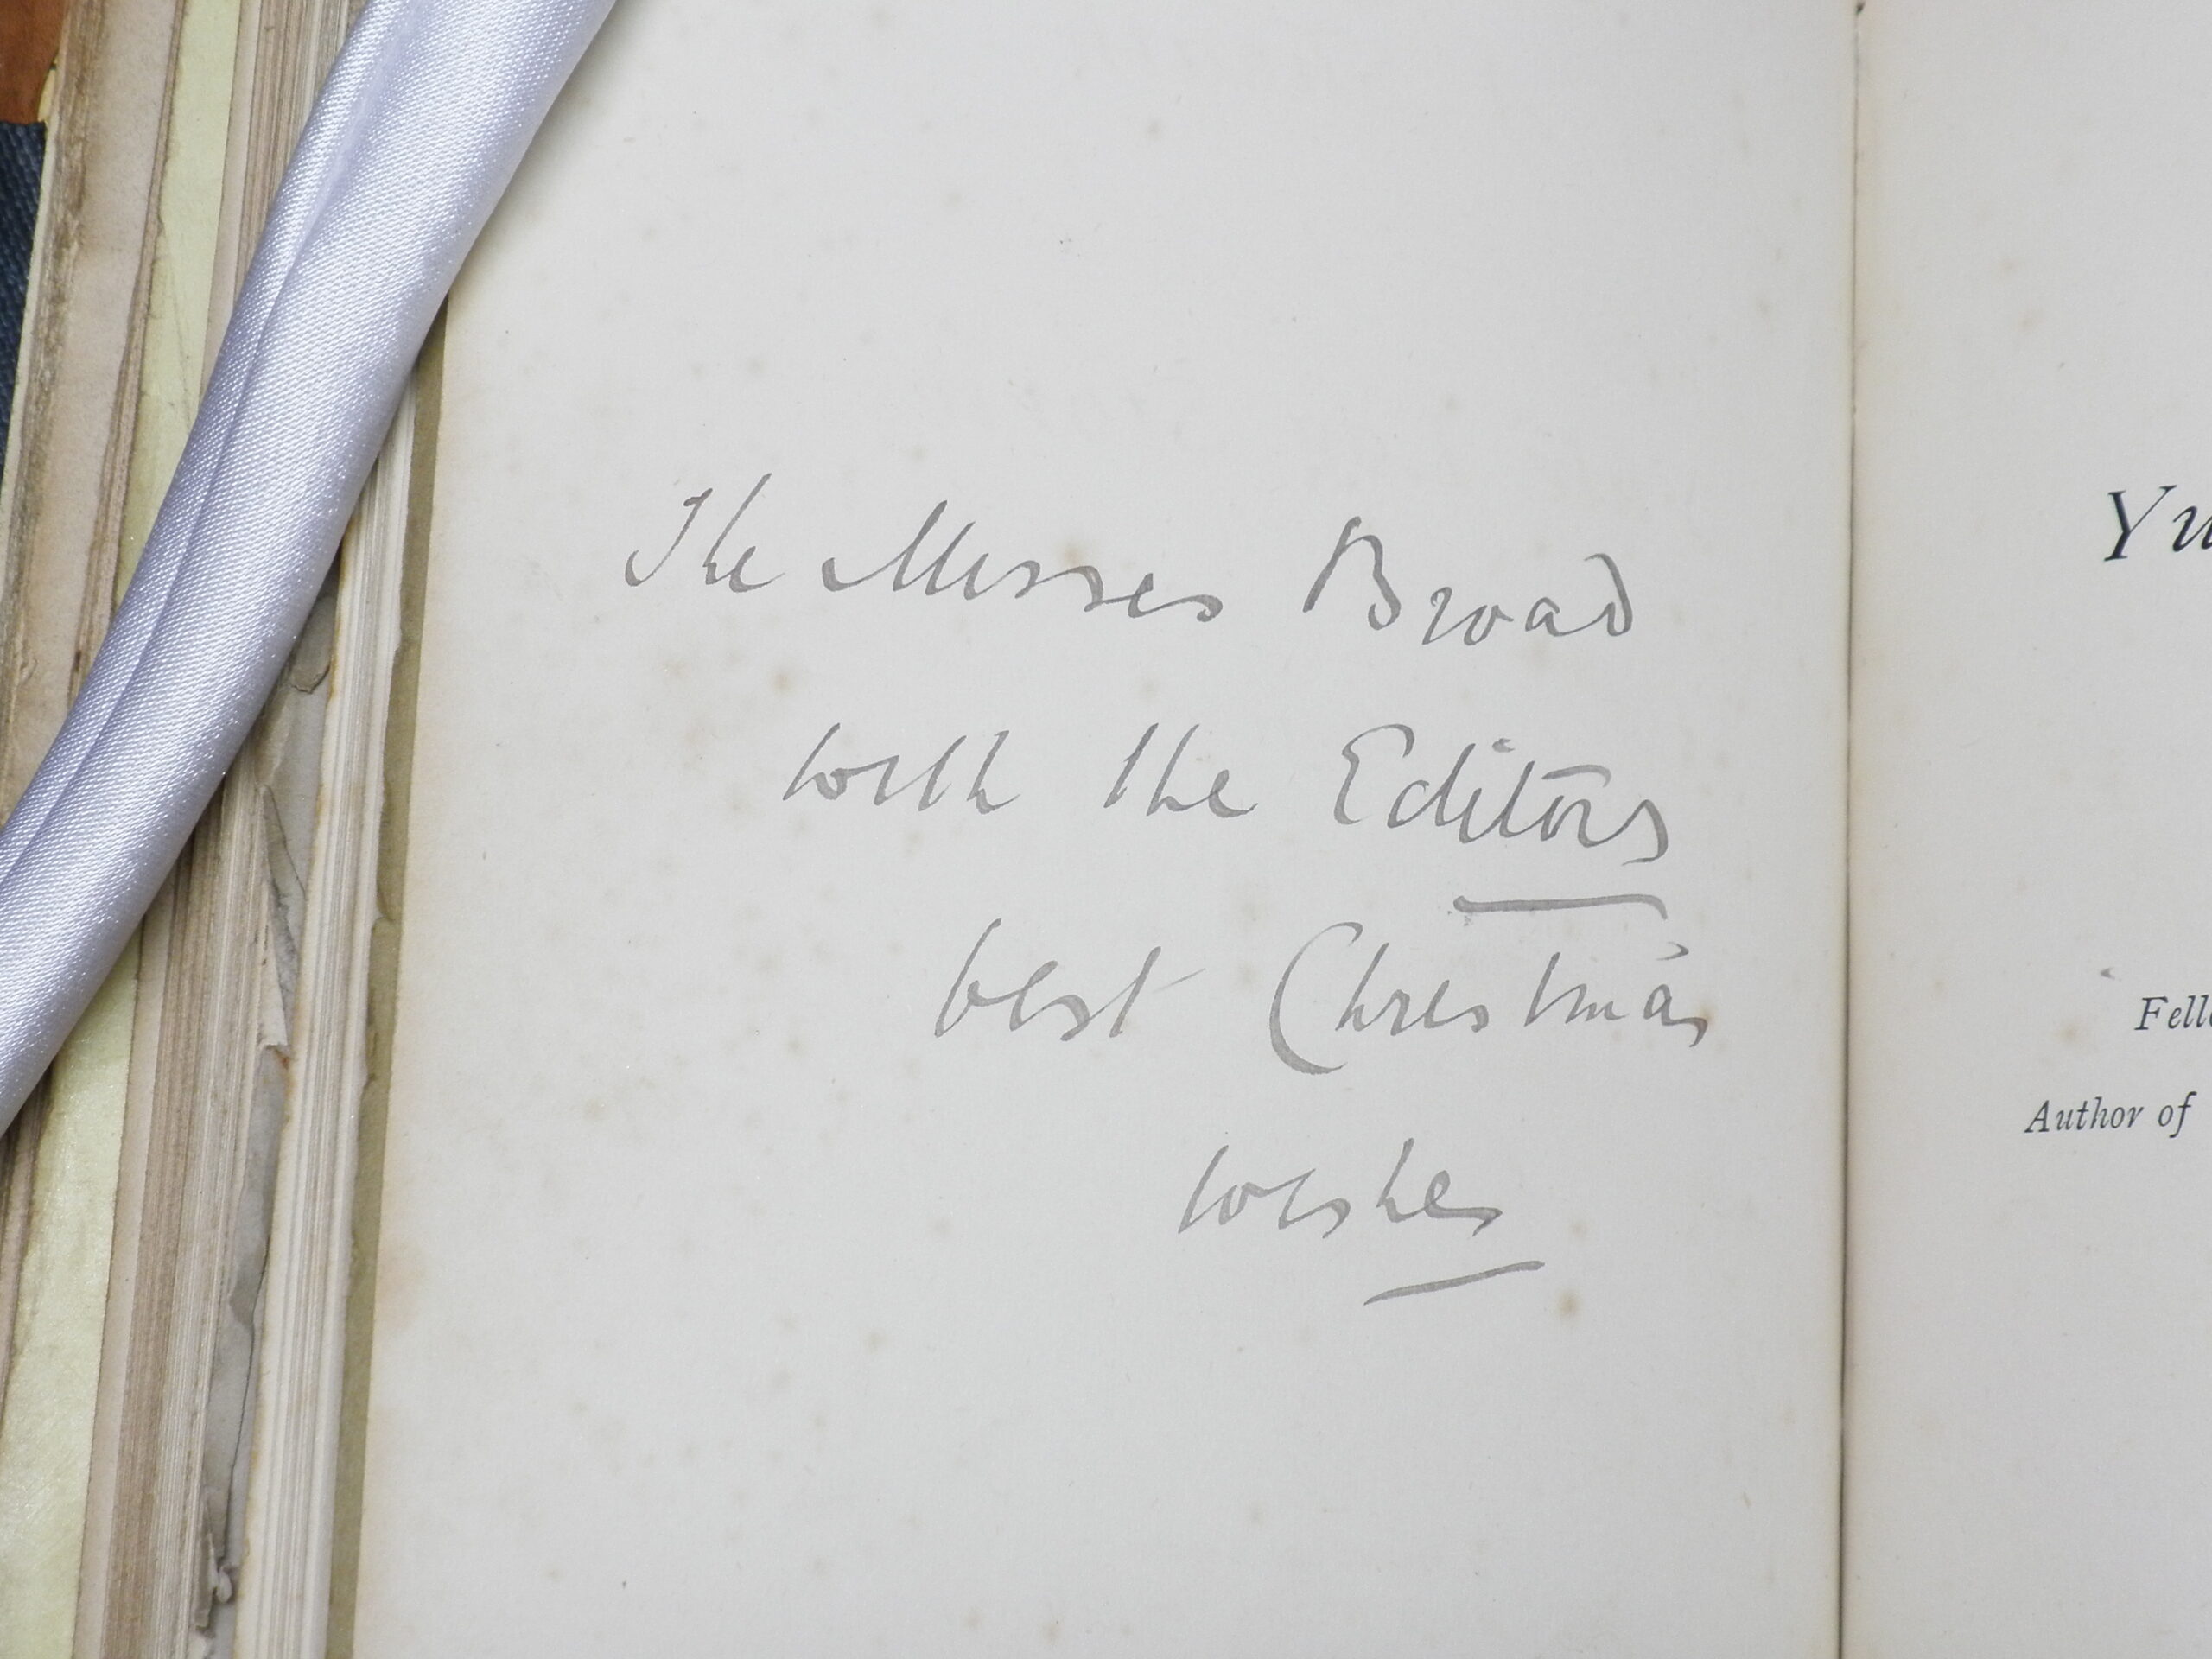 The Misses Broad
with the Editors
best Christmas
wishes
Yu
Fell
Author of